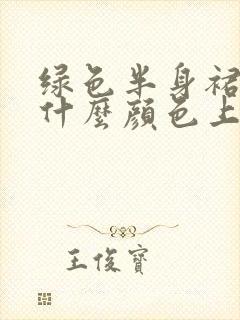 绿色半身裙
什麼顔色上
王俊寶